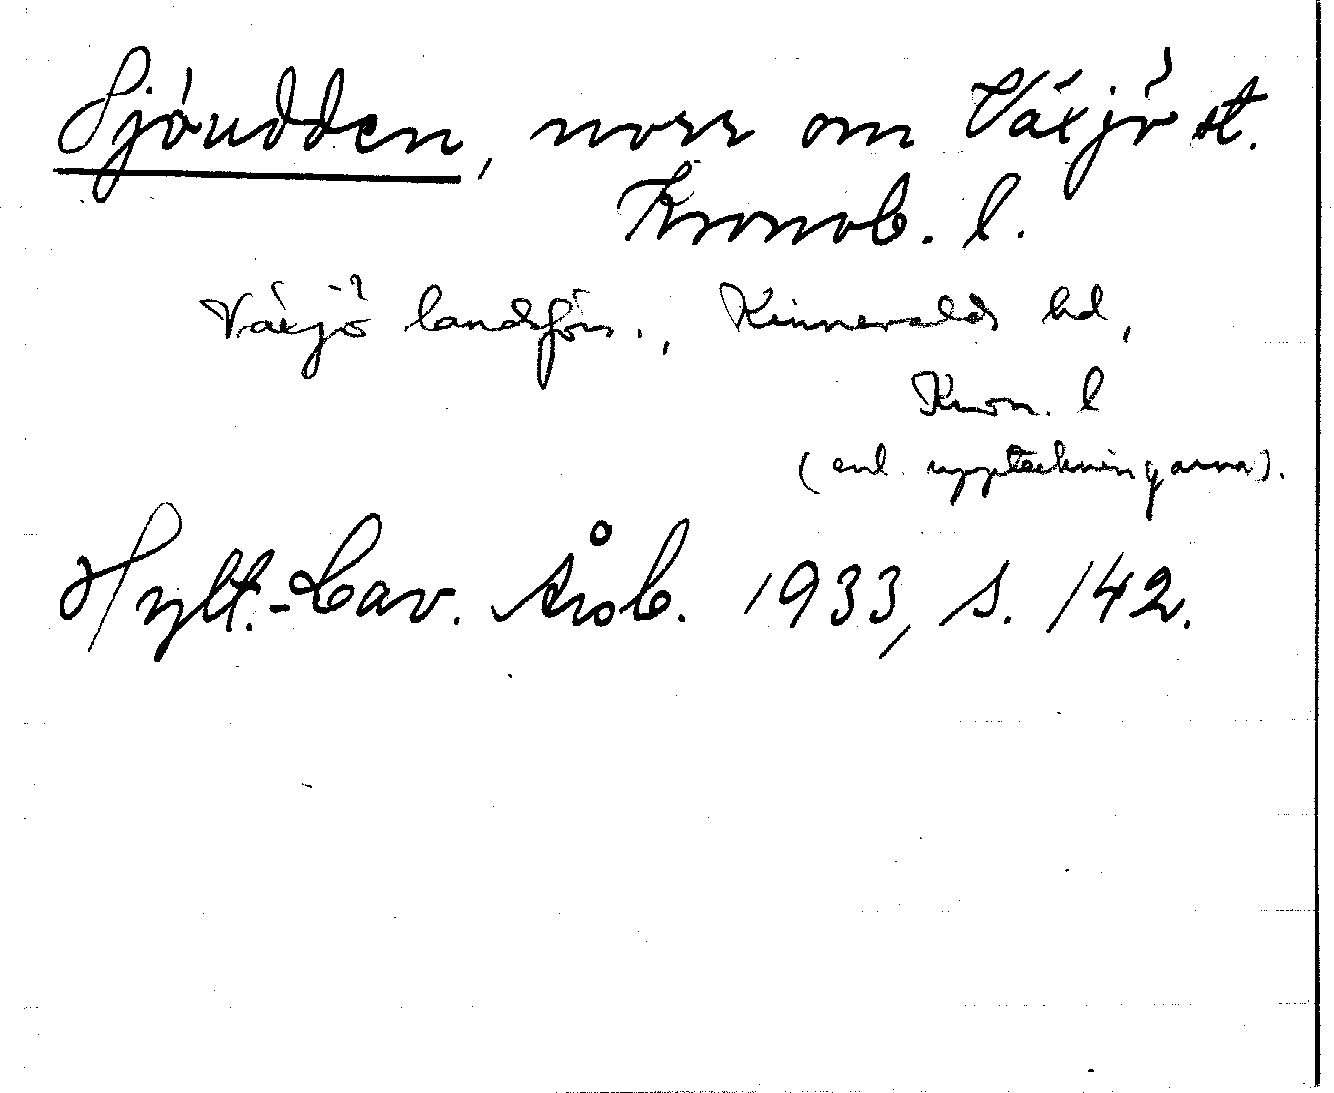 Sjöudden, norr om Växjö st.
Kronob. l.
Växjö landsförs., Kinnevalds hd,
Kron. l
(enl. uppteckningarna).
Hylt.-Cav. Årsb. 1933, s. 142.